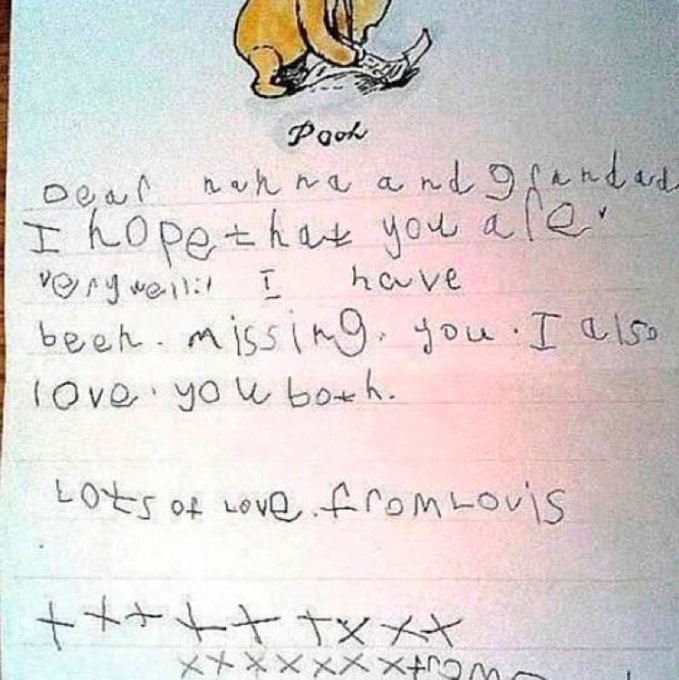 Pooh
Dear nanna and grandad
I hope that you are
very well I have
been. missing. you. I also
love. you both.
Lots of Love. from Louis
+ + + + + + x x x
x x x x x x x x